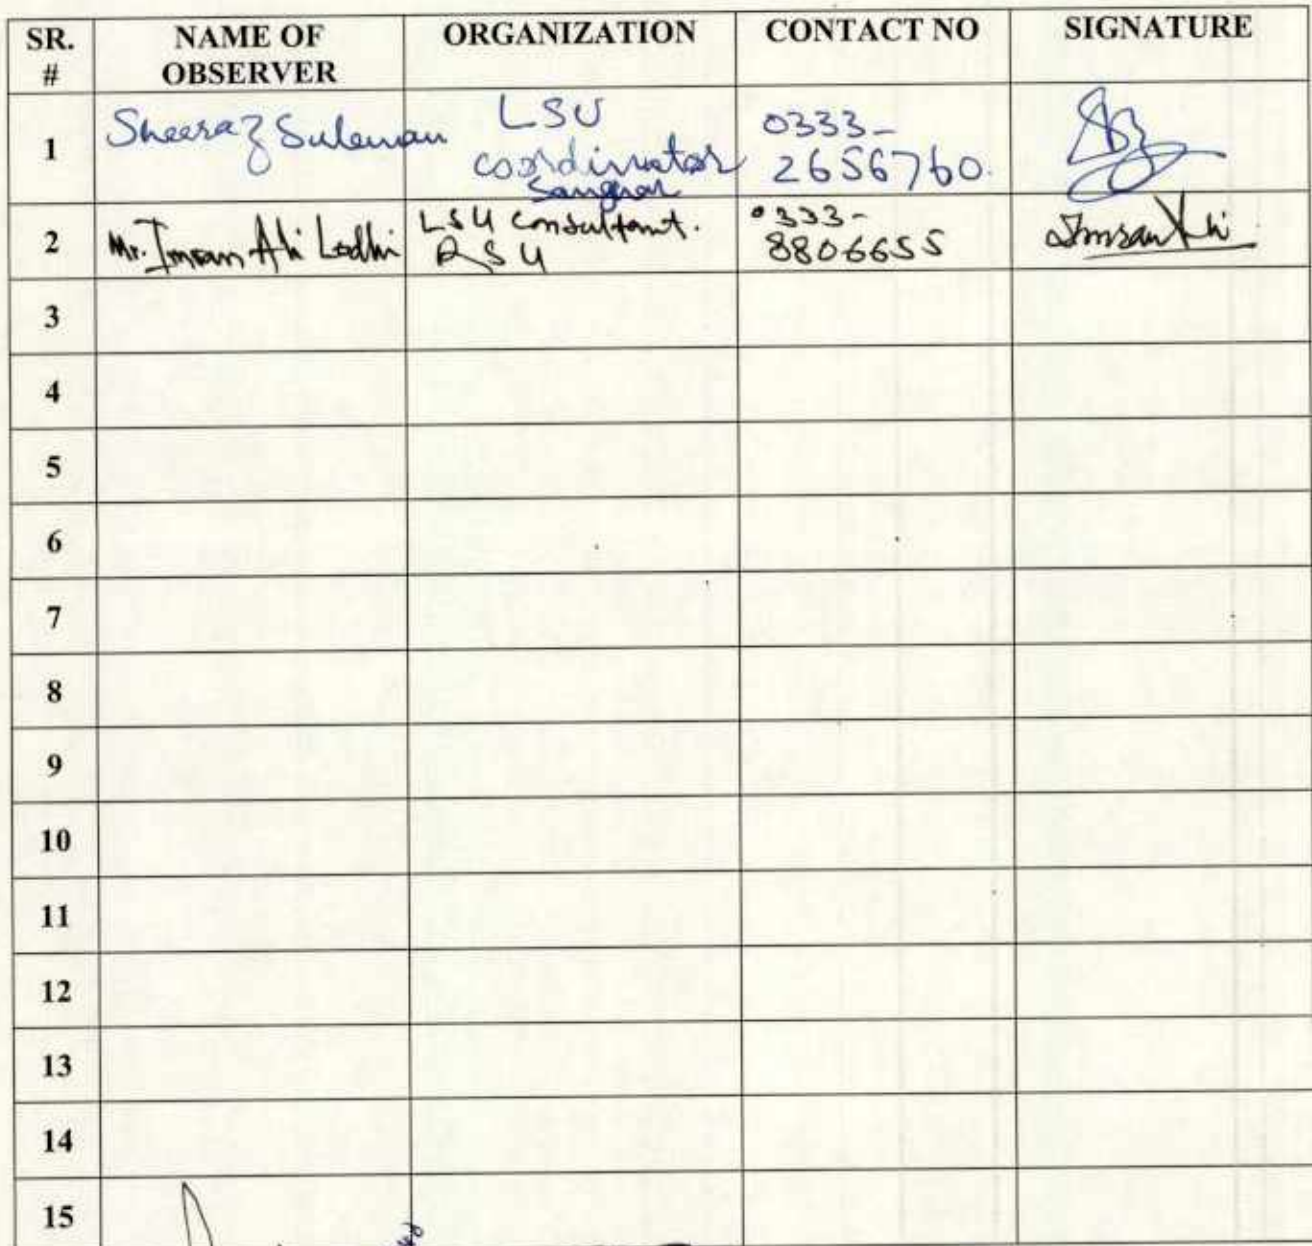 SR. # NAME OF OBSERVER ORGANIZATION CONTACT NO SIGNATURE
1 Sheeraz Suleman LSU coordinator Sanghar 0333-2656760
2 Mr. Imran Ali Lodhi LSU Consultant. RSU 0333-8806655 Imran Ali
3
4
5
6
7
8
9
10
11
12
13
14
15